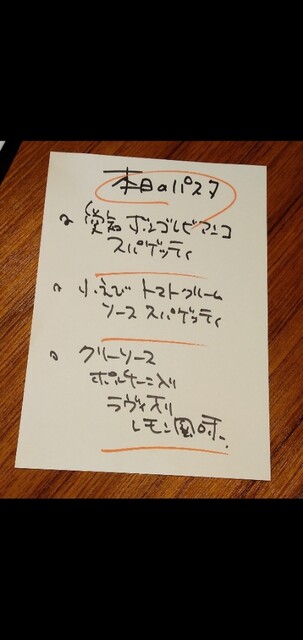 本日のパスタ
愛知 ボンゴレビアンコ
スパゲッティ
小えび トマトクリーム
ソース スパゲッティ
クリーソース
ポルチーニ入り
ラヴィオリ
レモン風味